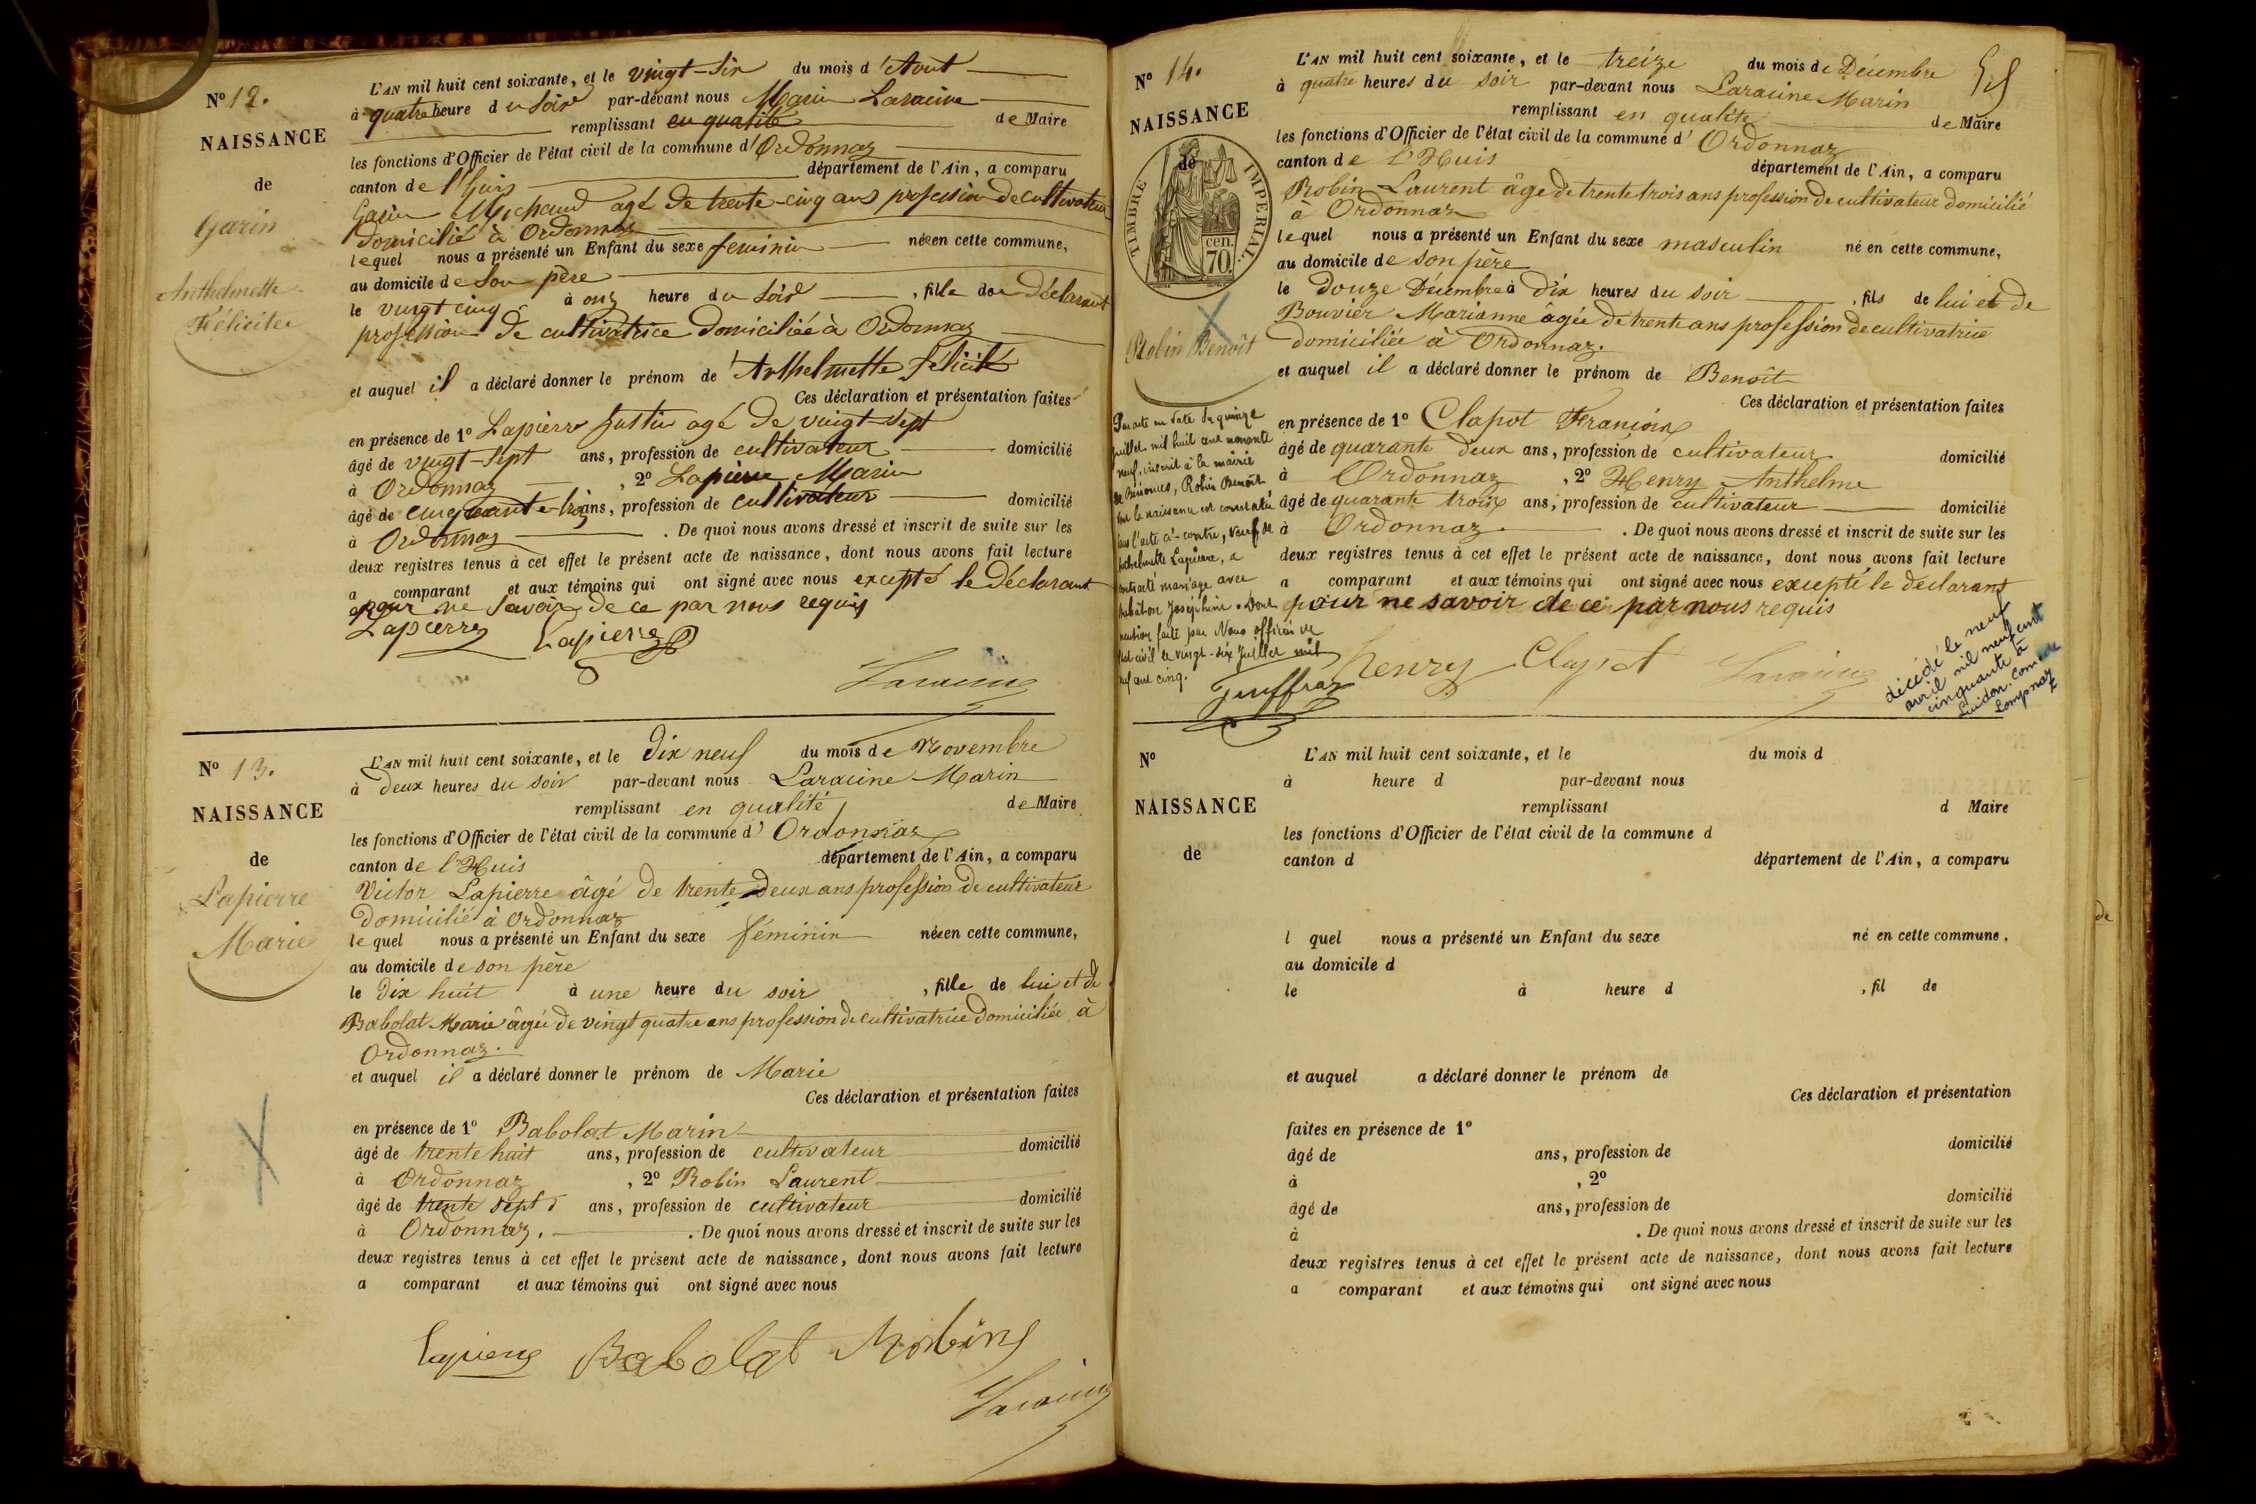 N° 12.
NAISSANCE
de
Garin
Anthelmette
Félicitee
L'AN mil huit cent soixante, et le vingt-six du mois d'Aout
à quatre heure du soir par-devant nous Marin Laracine
remplissant en qualité de Maire
les fonctions d'Officier de l'état civil de la commune d'Ordonnaz
canton de l'huis département de l'Ain, a comparu
Garin Michaud agé de trente-cinq ans profession de cultivateur
domicilié à Ordonnaz
lequel nous a présenté un Enfant du sexe feminin née en cette commune,
au domicile de son père
le vingt cinq à onz heure du soir , fille de Déclarant
profession de cultivatrice domiciliée à Ordonnaz
et auquel il a déclaré donner le prénom de Anthelmette félicité
Ces déclaration et présentation faites
en présence de 1° Lapierre Justin agé de vingt-sept
âgé de vingt-sept ans, profession de cultivateur domicilié
à Ordonnaz , 2° Lapierre Marin
âgé de cinquante trois ans, profession de cultivateur domicilié
à Ordonnaz . De quoi nous avons dressé et inscrit de suite sur les
deux registres tenus à cet effet le présent acte de naissance, dont nous avons fait lecture
a comparant et aux témoins qui ont signé avec nous excepté le déclarant
pour ne savoir de ce par nous requis
Lapierre Lapierre
Laracine
N° 13.
NAISSANCE
de
Lapierre
Marie
L'AN mil huit cent soixante, et le dix neuf du mois de Novembre
à deux heures du soir par-devant nous Laracine Marin
remplissant en qualité de Maire
les fonctions d'Officier de l'état civil de la commune d'Ordonnaz
canton de l'Huis département de l'Ain, a comparu
Victor Lapierre âgé de trente deux ans profession de cultivateur
domicilié à Ordonnaz
lequel nous a présenté un Enfant du sexe féminin née en cette commune,
au domicile de son père
le dix huit à une heure du soir , fille de lui et de
Babolat Marie âgée de vingt quatre ans profession de cultivatrice domiciliée à
Ordonnaz.
et auquel il a déclaré donner le prénom de Marie
Ces déclaration et présentation faites
en présence de 1° Babolat Marin
âgé de trente huit ans, profession de cultivateur domicilié
à Ordonnaz , 2° Robin Laurent
âgé de trente sept ans, profession de cultivateur domicilié
à Ordonnaz. . De quoi nous avons dressé et inscrit de suite sur les
deux registres tenus à cet effet le présent acte de naissance, dont nous avons fait lecture
a comparant et aux témoins qui ont signé avec nous
Lapierre Babolat Robin
Laracine
N° 14.
NAISSANCE
de
TIMBRE IMPERIAL.
cen.
70.
Robin Benoît
L'AN mil huit cent soixante, et le treize du mois de Décembre
à quatre heures du soir par-devant nous Laracine Marin
remplissant en qualité de Maire
les fonctions d'Officier de l'état civil de la commune d'Ordonnaz
canton de l'Huis département de l'Ain, a comparu
Robin Laurent âgé de trente trois ans profession de cultivateur domicilié
à Ordonnaz
lequel nous a présenté un Enfant du sexe masculin né en cette commune,
au domicile de son père
le douze Décembre à dix heures du soir , fils de lui et de
Bouvier Marianne âgée de trente ans profession de cultivatrice
domiciliée à Ordonnaz.
et auquel il a déclaré donner le prénom de Benoît
Ces déclaration et présentation faites
en présence de 1° Clapot François
âgé de quarante deux ans, profession de cultivateur domicilié
à Ordonnaz , 2° Henry Anthelme
âgé de quarante trois ans, profession de cultivateur domicilié
à Ordonnaz . De quoi nous avons dressé et inscrit de suite sur les
deux registres tenus à cet effet le présent acte de naissance, dont nous avons fait lecture
a comparant et aux témoins qui ont signé avec nous excepté le déclarant
pour ne savoir de ce par nous requis
henry Clapot Laracine
Par acte en date du quinze
juillet mil huit cent nonante
neuf, inscrit à la mairie
de Benonces, Robin Benoît
dont la naissance est constatée
dans l'acte ci-contre, veuf de
Anthelmette Lapierre, a
contracté mariage avec
Joséphine. Dont
mention faite par Nous officier de
l'état civil le vingt-six Juillet mil
neuf cent cinq.
décédé le neuf
avril mil neuf cent
cinquante à
N°
NAISSANCE
de
L'AN mil huit cent soixante, et le du mois d
à heure d par-devant nous
remplissant d Maire
les fonctions d'Officier de l'état civil de la commune d
canton d département de l'Ain, a comparu
l quel nous a présenté un Enfant du sexe né en cette commune,
au domicile d
le à heure d , fil de
et auquel a déclaré donner le prénom de
Ces déclaration et présentation
faites en présence de 1°
âgé de ans, profession de domicilié
à , 2°
âgé de ans, profession de domicilié
à . De quoi nous avons dressé et inscrit de suite sur les
deux registres tenus à cet effet le présent acte de naissance, dont nous avons fait lecture
a comparant et aux témoins qui ont signé avec nous
de